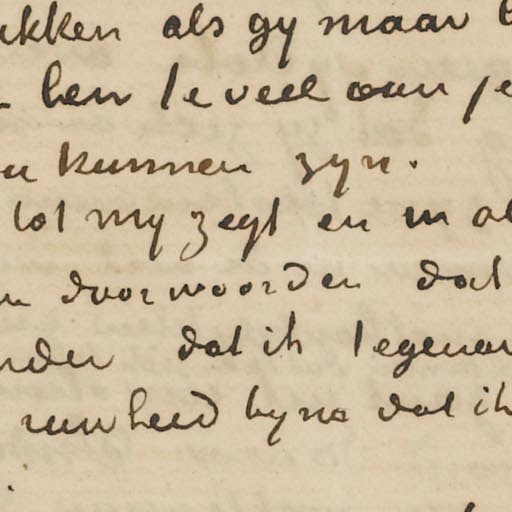 ukken als gy maar
ben te veel aan je
kunnen zyn.
tot my zegt en in al
door woorden dat
nder dat ik tegenov
ruwheid byna dat ik